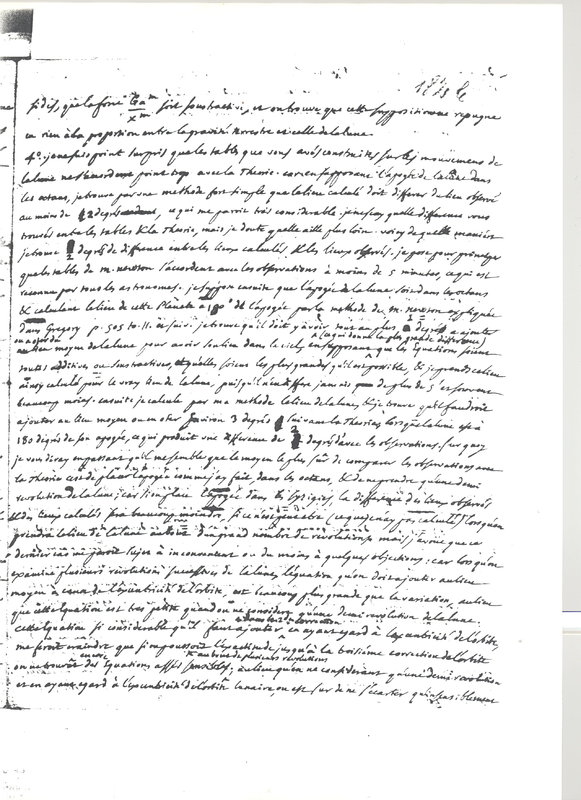 si dis, que la force Ga^m / x^m soit soustractive, et on trouve que cette supposition ne repugne
en rien à la proportion entre la gravité terrestre et celle de la lune.
4°. je ne suis point surpris que les tables que vous avés construites sur les mouvemens de
la lune ne s'accordent point trop avec la Theorie. car en supposant l'apogée de la lune dans
les octans, je trouve par une methode fort simple que le lieu calculé doit differer du lieu observé
au moins de 2 degrés, ce qui me paroit très considerable. je ne sçay quelle difference vous
trouvés entre les tables & la Theorie, mais je doute qu'elle aille plus loin. voicy de quelle maniere
je trouve degrés de difference entre les lieux calculés & les lieux observés. je pose pour principe
que les tables de m. newton s'accordent avec les observations à moins de 5 minutes, ce qui est
reconnu par tous les astronomes. je suppose ensuite que l'apogée de la lune soit dans les octans
& calculant le lieu de cette Planete à 180° de l'apogée par la methode de m. newton expliquée
dans Gregory p. 505 to. II. et suiv. je trouve qu'il doit y avoir tout au plus degré a ajouter
(ce qui donne la plus grande difference)
ou a oter du
lieu moyen de la lune pour avoir son lieu dans le ciel, en supposant que les Equations soient
toutes additives ou soustractives, et qu'elles soient les plus grandes qu'il est possible, & je prends ce lieu
ainsy calculé pour le vray lieu de la lune, puisqu'il n'en differe jamais de plus de 5' et souvent
beaucoup moins. ensuite je calcule par ma methode le lieu de la lune, & je trouve qu'il faudroit
ajouter au lieu moyen ou en oter environ 3 degrés suivant la Theorie, lorsque la lune est à
180 degrés de son apogée, ce qui produit une difference de degrés avec les observations. sur quoy
je vous diray en passant qu'il me semble que le moyen le plus sûr de comparer les observations avec
la Theorie c'est de placer l'apogée comme j'ay fait, dans les octans, & de ne prendre qu'une demi
revolution de la lune; car si on place l'apogée dans les syzigies, la difference des lieux observés
& des lieux calculés sera beaucoup moindre, si ce n'est peut etre (ce que je n'ay pas calculé) lorsqu'on
prendra le lieu de la lune au bout d'un grand nombre de revolutions. mais j'avoue que ce
dernier cas me paroit sujet à inconvenient ou du moins à quelques objections: car lorsqu'on
examine plusieurs revolutions successives de la lune, l'équation qu'on doit ajouter au lieu
moyen à cause de l'excentricité de l'orbite, est beaucoup plus grande que la variation, au lieu
que cette Equation est très petite quand on ne considere qu'une demi revolution de la lune.
cette Equation si considerable qu'il faut ajouter, en ayant egard à l'excentricité de l'orbite,
me feroit craindre que si on poussoit l'exactitude jusqu'à la troisième correction de l'orbite
encore au bout de plusieurs revolutions
on ne trouvât des Equations assés sensibles; au lieu qu'en ne considerant qu'une demi revolution
et en ayant egard à l'excentricité de l'orbite lunaire, on est sur de ne s'écarter qu'insensiblement